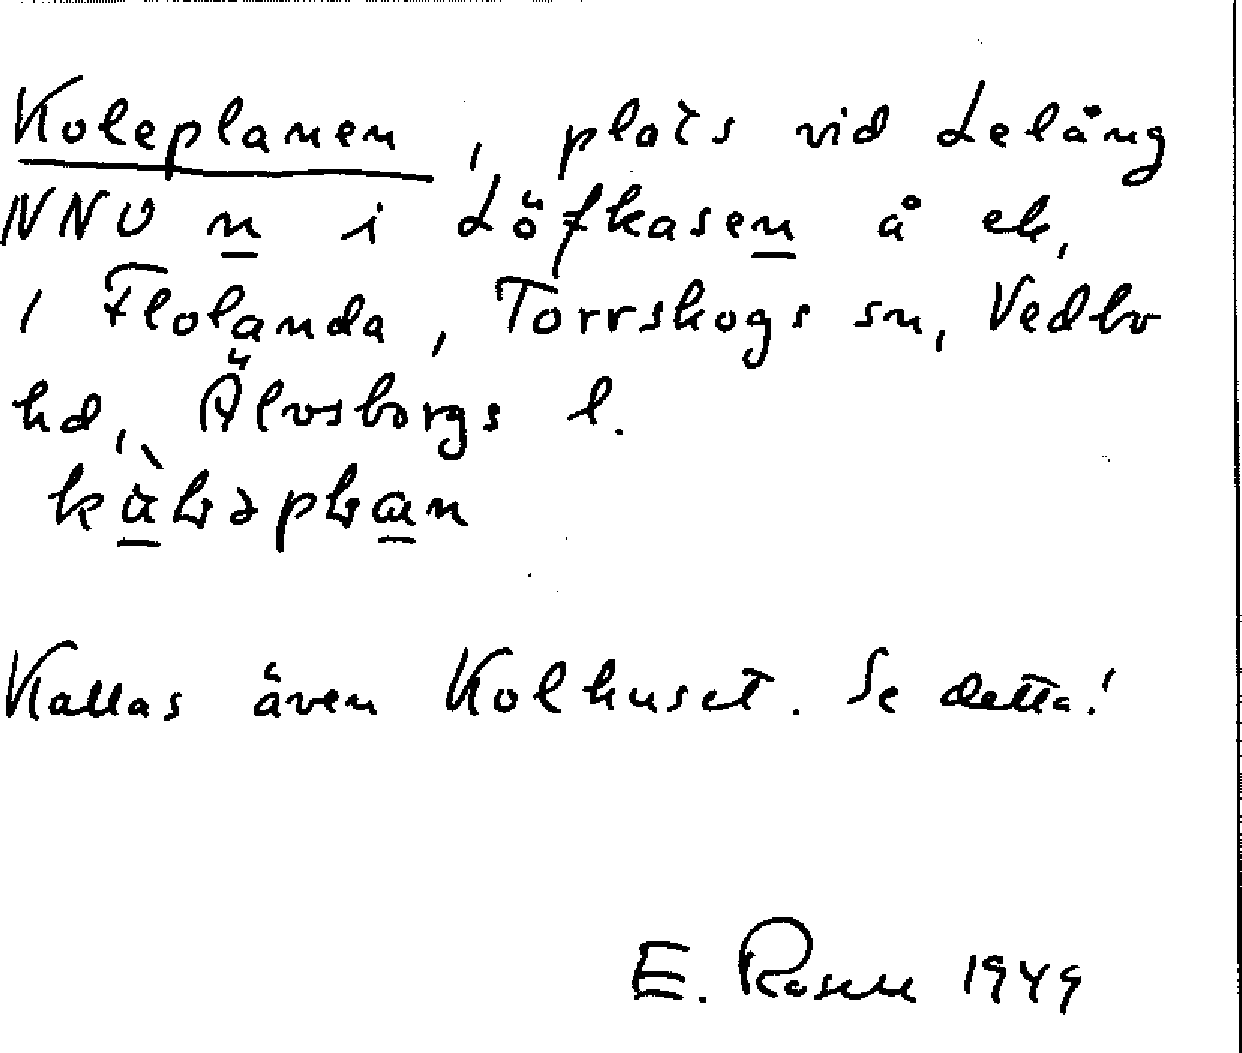 Koleplanen, plats vid Lelång
NNV n i Löfkasen å ek,
i Flolanda, Torrskogs sn, Vedbo
hd, Älvsborgs l.
Kallas även Kolhuset. Se detta!
E. Rosell 1949